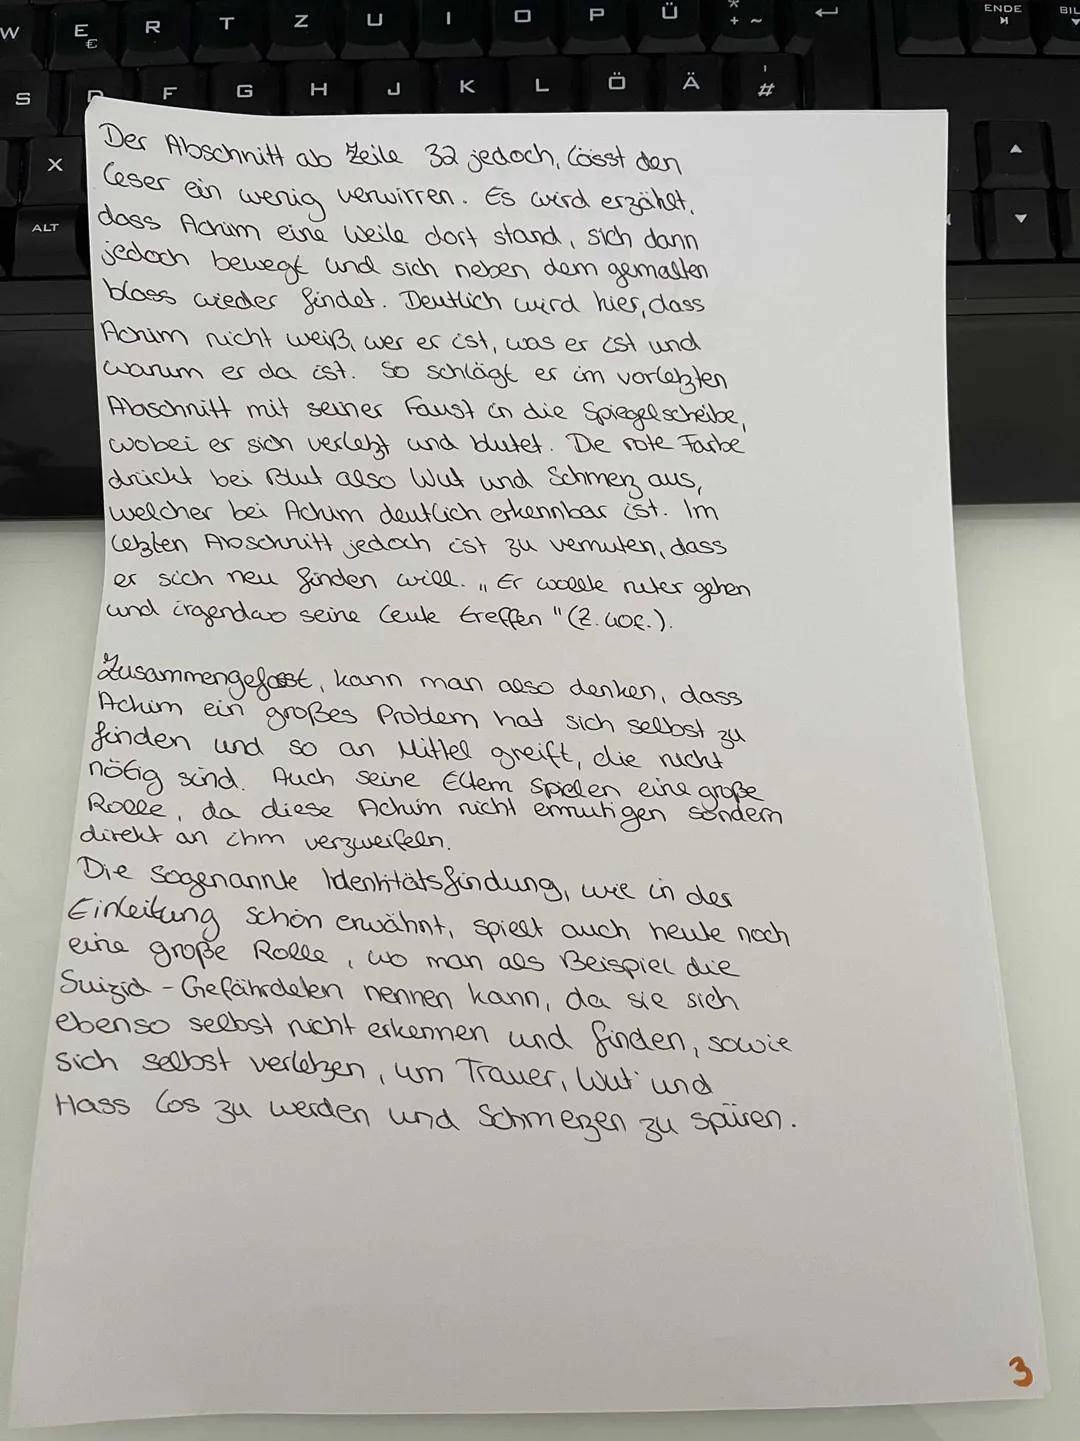 W E R T Z U I O P Ü * + ~ ENDE BIL
€
S D F G H J K L Ö Ä ' #
X
ALT
Der Abschnitt ab Zeile 32 jedoch, lässt den
Leser ein wenig verwirren. Es wird erzählt,
dass Achim eine Weile dort stand, sich dann
jedoch bewegt und sich neben dem gemalten
blass wieder findet. Deutlich wird hier, dass
Achim nicht weiß, wer er ist, was er ist und
warum er da ist. So schlägt er im vorletzten
Abschnitt mit seiner Faust in die Spiegelscheibe,
wobei er sich verletzt und blutet. Die rote Farbe
drückt bei Blut also Wut und Schmerz aus,
welcher bei Achim deutlich erkennbar ist. Im
letzten Abschnitt jedoch ist zu vermuten, dass
er sich neu finden will. „Er wollte runter gehen
und irgendwo seine Leute treffen" (Z. 40f.).
Zusammengefasst, kann man also denken, dass
Achim ein großes Problem hat sich selbst zu
finden und so an Mittel greift, die nicht
nötig sind. Auch seine Eltern spielen eine große
Rolle, da diese Achim nicht ermutigen sondern
direkt an ihm verzweifeln.
Die sogenannte Identitätsfindung, wie in der
Einleitung schon erwähnt, spielt auch heute noch
eine große Rolle, wo man als Beispiel die
Suizid - Gefährdeten nennen kann, da sie sich
ebenso selbst nicht erkennen und finden, sowie
sich selbst verletzen, um Trauer, Wut und
Hass los zu werden und Schmerzen zu spüren.
3